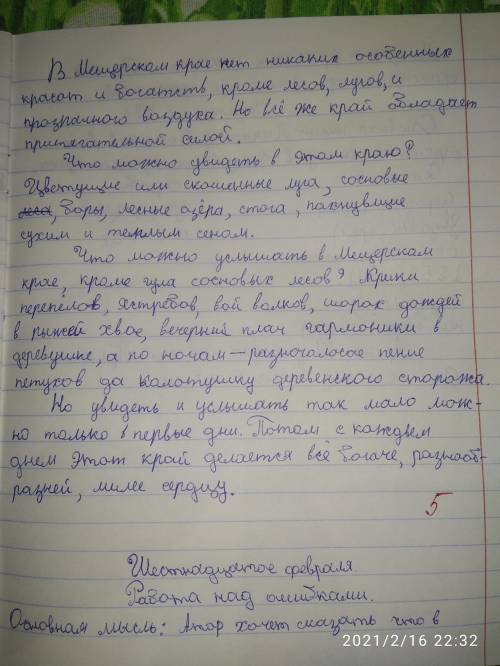 В Мещерском крае нет никаких особенных
красот и богатств, кроме лесов, лугов, и
прозрачного воздуха. Но всё же край обладает
притягательной силой.
Что можно увидеть в этом краю?
Цветущие или скошенные луга, сосновые
леса, боры, лесные озёра, стога, пахнувщие
сухим и теплым сеном.
Что можно услышать в Мещерском
крае, кроме гула сосновых лесов? Крики
перепелов, ястребов, вой волков, шорох дождей
в рыжей хвое, вечерний плач гармоники в
деревушке, а по ночам — разноголосое пение
петухов да колотушку деревенского сторожа.
Но увидеть и услышать так мало мож-
но только в первые дни. Потом с каждым
днем этот край делается всё богаче, разнооб-
разней, милее сердцу.
5
Шестнадцатое февраля
Работа над ошибками.
Основная мысль: Атор хочет сказать что в
2021/2/16 22:32